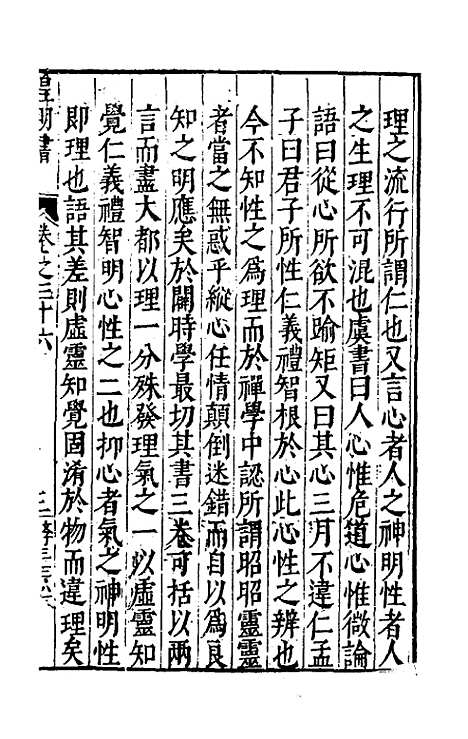 理之流行所謂仁也又言心者人之神明性者人
之生理不可混也虞書曰人心惟危道心惟微論
語曰從心所欲不踰矩又曰其心三月不違仁孟
子曰君子所性仁義禮智根於心此心性之辨也
今不知性之爲理而於禪學中認所謂昭昭靈靈
者當之無惑乎縱心任情顛倒迷錯而自以爲良
知之明應矣於闢時學最切其書三卷可括以兩
言而盡大都以理一分殊發理氣之一以虛靈知
覺仁義禮智明心性之二也抑心者氣之神明性
即理也語其差則虛靈知覺固淆於物而違理矣
皇明書
卷之三十六